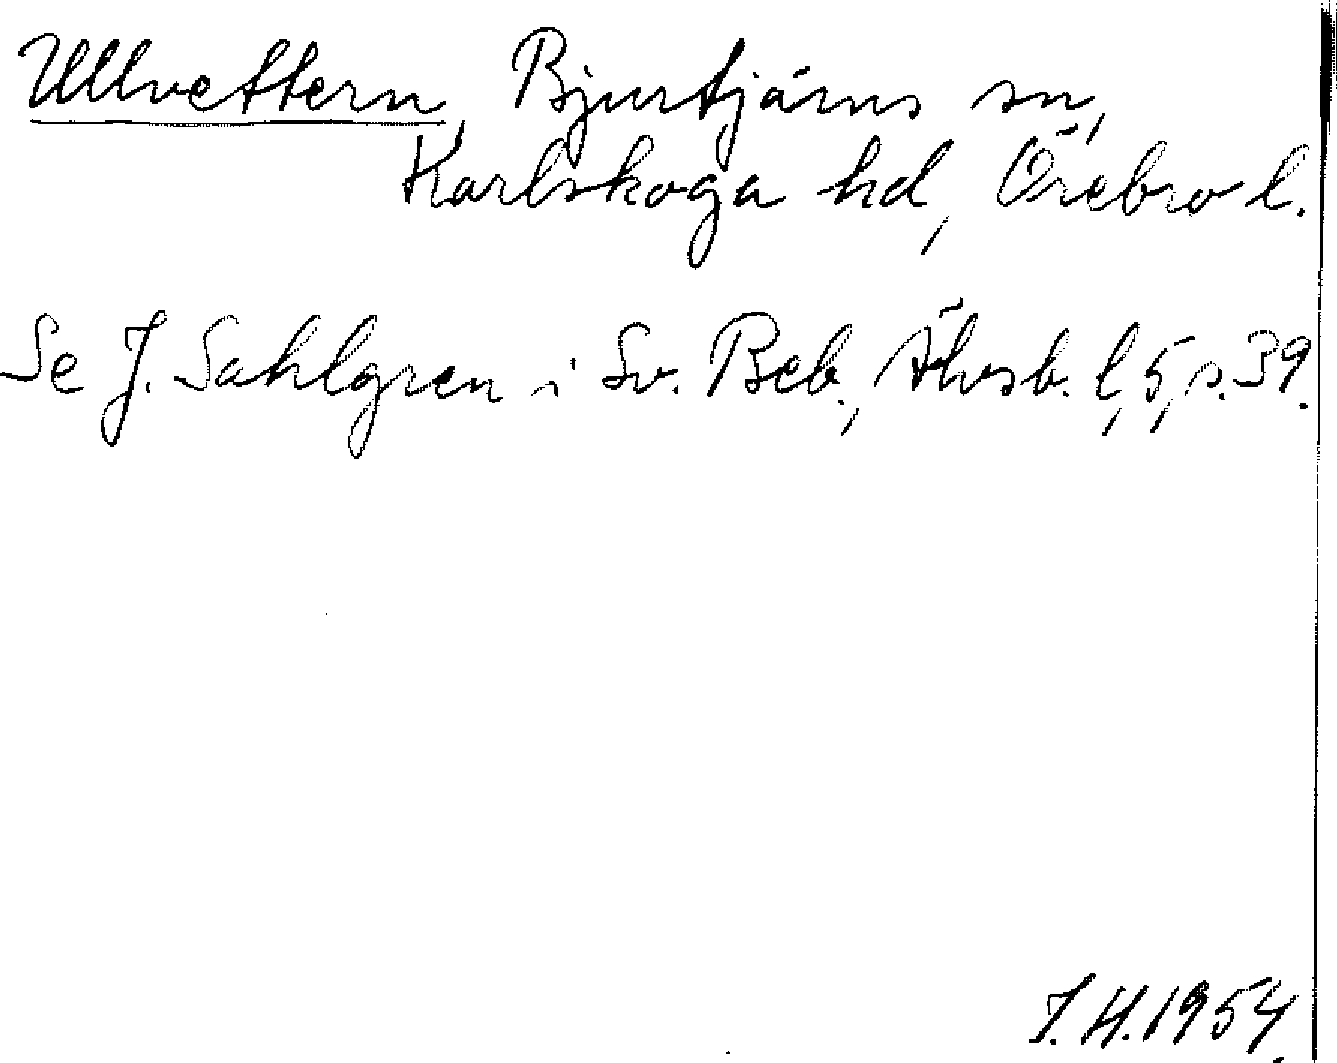 Ullvettern, Bjurtjärns sn,
Karlskoga hd, Örebro l.
Se J. Sahlgren i Sv. Beb., Älvsb. l, 5, s. 39.
J. H. 1954.